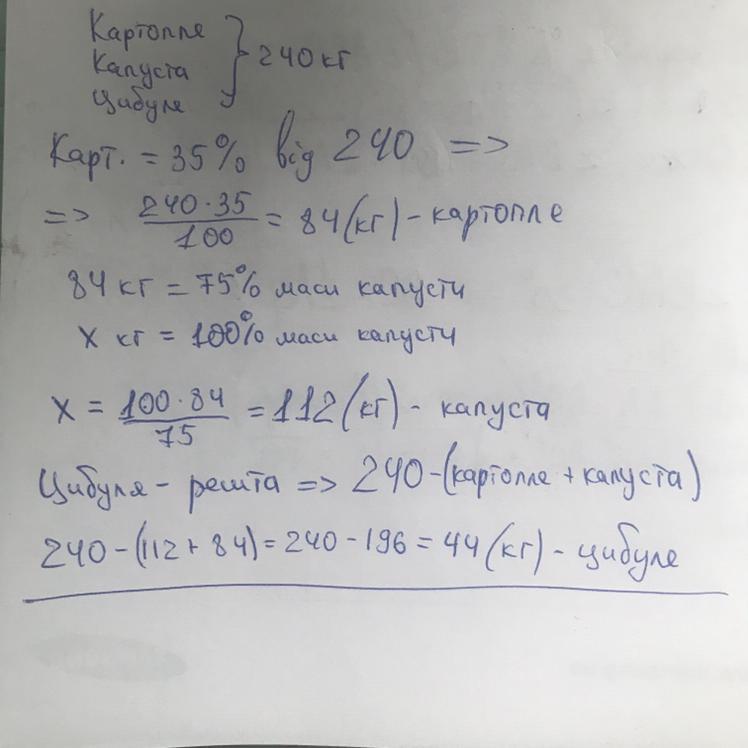 Картопля
Капуста } 240 кг
Цибуля
Карт. = 35% від 240 =>
=> 240·35/100 = 84(кг) - картопля
84 кг = 75% маси капусти
х кг = 100% маси капусти
х = 100·84/75 = 112(кг) - капуста
Цибуля - решта => 240-(картопля + капуста)
240-(112+84)=240-196=44(кг)- цибуля